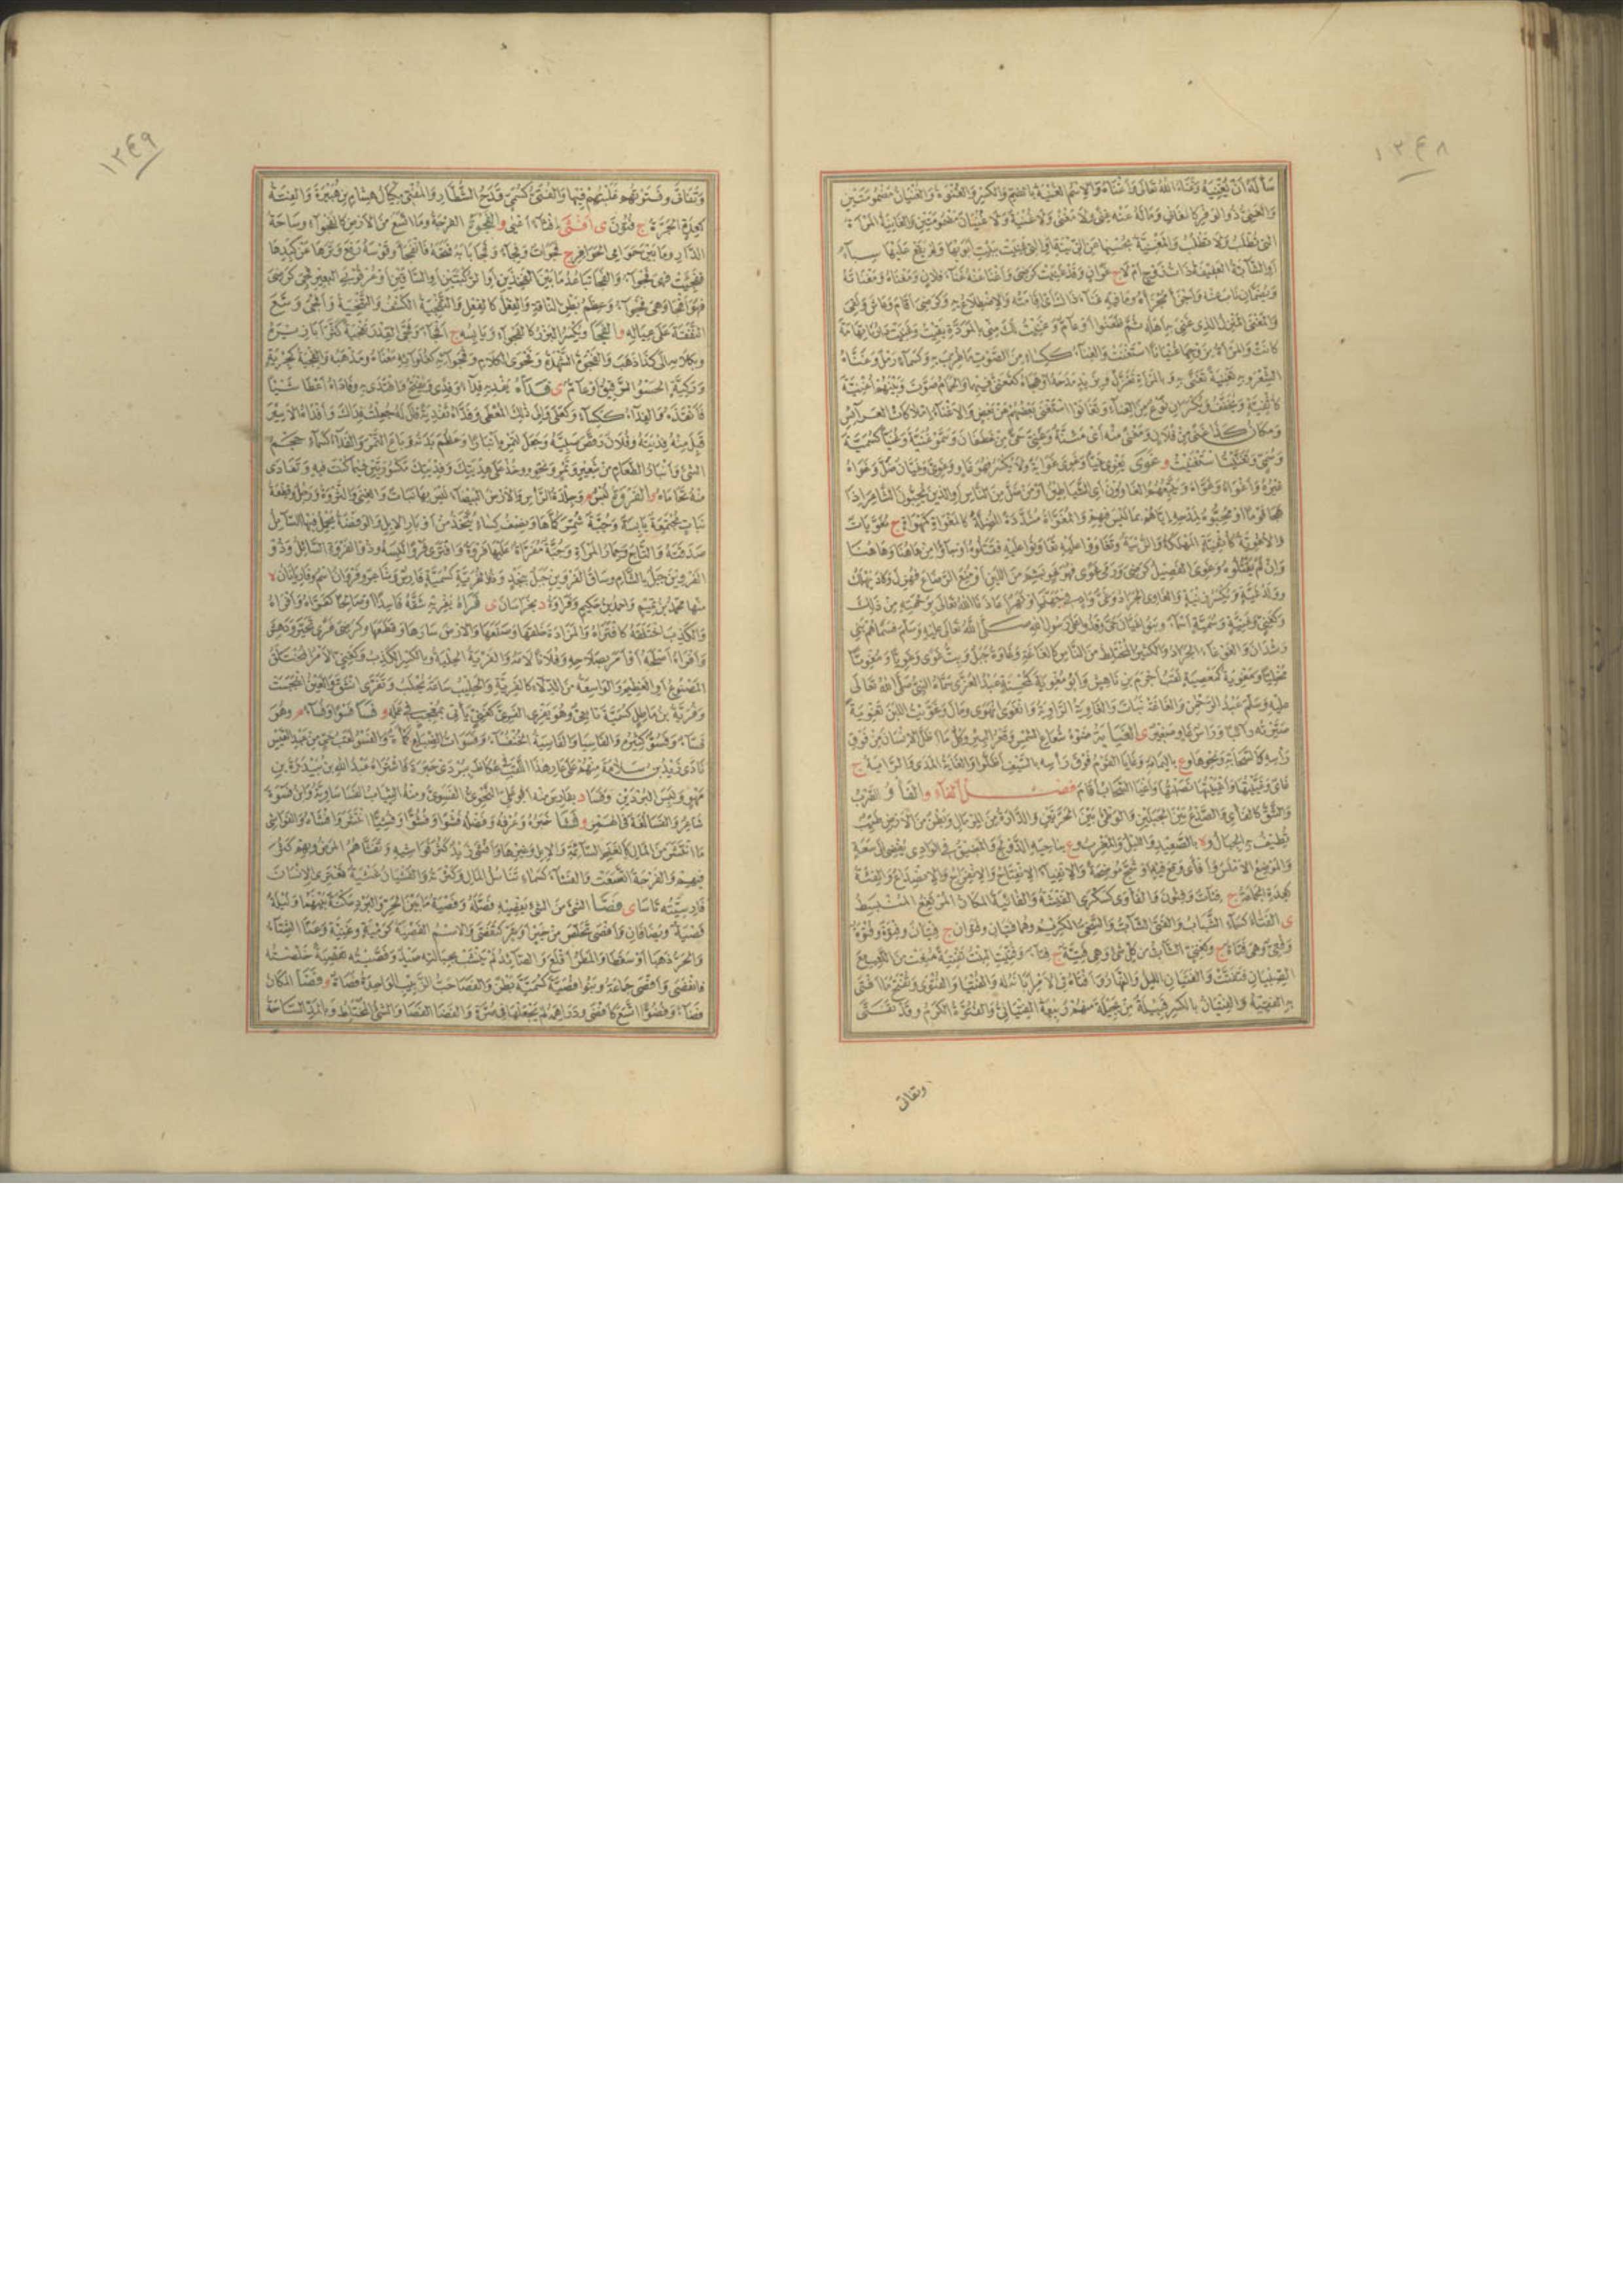 ١٣٤٨
سأله أن يغنيه وغناه الله تعالى وأغناه والاسم الغنية بالضم والكسر والغنوة والغنيان مضمومتين
والغني ذو الوفر كالغاني وماله عنه غنى ولا مغنى ولا غنية ولا غنيان مضمومتين والغانية المرأة
التي تطلب ولا تطلب
أو الشابة العفيفة ذات زوج أم لا ج غوان وقد غنيت كرضي وأغنى عنه غناء فلان ومغناه ومغناته
والمغنى المنزل الذي غني به أهله ثم ظعنوا أو عام وغنيت لك مني بالمودة بقيت
كانت والمرأة بزوجها غنيانا استغنت والغناء ككساء من الصوت ما طرب به وكسماء رمل وغناه
الشعر وبه تغنية تغنى به وبالمرأة تغزل وبزيد مدحه أو هجاه كتغنى فيهما والحمام صوت وبينهم أغنية
كأثفية ويخفف ويكسران نوع من الغناء وتغانوا استغنى بعضهم عن بعض والأغناء إملاكات العرائس
ومكان كذا غنى من فلان ومغنى منه أي مئنة وغني حي من غطفان وسموا غنية وغنيا كسمية
وسمي وتغنيت استغنيت و غوى يغوي غيا وغوي غواية ولا يكسر فهو غاو وغوي وغيان ضل وغواه
غيره وأغواه وغواه ويتبعهم الغاوون أي الشياطين أو من ضل من الناس أو الذين يحبون الشاعر إذا
هجا قوما أو محبوه لمدحه إياهم بما ليس فيهم والمغواة مشددة المضلة كالمغواة كمهواة ج مغويات
والأغوية كأثفية المهلكة والزبية وتغاووا عليه تعاونوا عليه فقتلوه أو جاؤا من هاهنا وهاهنا
وإن لم يقتلوه وغوى الفصيل كرضي ورمى غوى فهو غو بشم من اللبن أو منع الرضاع فهزل وكاد يهلك
وولد غية ويكسر زنية والغاوي الجراد
وكغني وغنية وسمية أسماء وبنو غيان حي وفدوا على رسول الله صلى الله تعالى عليه وسلم فسماهم بني
رشدان والغوغاء الجراد والكثير المختلط من الناس كالغاغة وغاوة جبل وبت غوى وغويا ومغويا
مخليا ومغوية كمعصية لقب أجرم بن ناهس وأبو مغوية كمحسنة عبد العزى سماه النبي صلى الله تعالى
عليه وسلم عبد الرحمن والغاغة نبات والغاوية الراوية وانغوى انهوى ومال وغويت اللبن تغوية
صيرته رائبا ورأس غاو صغير ي الغياية ضوء شعاع الشمس وقعر البئر وكل ما أظل الإنسان من فوق
رأسه كالسحابة ونحوها و ع باليمامة وغايا القوم فوق رأسه بالسيف أظلوا والغاية المدى والراية ج
غاي وغييتها وأغييتها نصبتها وأغيا السحاب أقام فصل الفاء و الفأو الضرب
والشق كالفأي والصدع بين الجبلين والوطيء بين الحرتين والدارة من الرمال وبطن من الأرض طيب
تطيف به الجبال و ة بالصعيد والليل والمغرب و ع بناحية الدولج والمضيق في الوادي يفضي إلى سعة
والموضع الأملس وفأى وقع فيه أو شج موضحة والانفياء الانفتاح والانفراج والانصداع والفئة
كعدة الجماعة ج فئات وفئون والفأوى كسكرى الفيشة والفائية المكان المرتفع المنبسط
ي الفتاء كسماء الشباب والفتى الشاب والسخي الكريم وهما فتيان وفتوان ج فتيان وفتوة وفتو
وفتي وهي فتاة ج وكغني الشاب من كل شيء وهي فتية ج فتاء وفتيت البنت تفتية منعت من اللعب مع
الصبيان فتفتت والفتيان الليل والنهار وأفتاه في الأمر أبانه له والفتيا والفتوى وتفتح ما أفتى
به الفقيه والفتيان بالكسر قبيلة من بجيلة منهم رفاعة الفتياني والفتوة الكرم وقد تفتى
وتفاتى
١٣٤٩
وتفاتى وفتوتهم غلبتهم فيها والفتي كسمي قدح الشطار والمفتي مكيال هشام بن هبيرة والفتة
كعدة الحرة ج فتون ي أفثى إفثاء أعيى و الفجوة الفرجة وما اتسع من الأرض كالفجواء وساحة
الدار وما بين حوامي الحوافر ج فجوات وفجاء وفجا بابه فتحه فانفجى وقوسه رفع وترها عن كبدها
ففجيت فهي فجواء والفجا تباعد ما بين الفخذين أو الركبتين أو الساقين أو عرقوبي البعير فجي كرضي
فهو أفجى وهي فجواء وعظم بطن الناقة والفعل كالفعل والتفجية الكشف والتنحية وأفجى وسع
النفقة على عياله و الفحا ويكسر البزر كالفحواء أو يابسه ج أفحاء وفحى القدر تفحية كثر أبازيرها
وبكلامه إلى كذا ذهب والفحوة الشهدة وفحوى الكلام وفحواؤه كغلوائه معناه ومذهبه والفحية كجرية
وتركية الحسو الرقيق أو عام ي فداه يفديه فداء وفدى ويفتح وافتدى به وفاداه أعطى شيئا
فأنقذه والفداء ككساء وكعلى وإلى ذلك المعطى وفداه تفدية قال له جعلت فداك وأفداه الأسير
قبل منه فديته وفلان رقص صبيه وجعل لتمره أنبارا وعظم بدنه وباع التمر والفداء كسماء حجم
الشيء وأنبار الطعام من شعير وتمر ونحوه وخذ على هديتك وفديتك مكسورتين فيما كنت فيه وتفادى
منه تحاماه و الفرو والفروة لبس م وجلدة الرأس والأرض البيضاء ليس بها نبات والغنى والثروة ورجل وقطعة
نبات مجتمعة يابسة وجبة شمر كماها ونصف كساء يتخذ من أوبار الإبل والوفضة يجعل فيها السائل
صدقته والتاج وخمار المرأة وجبة مفراة عليها فروة وافترى فروا لبسه وذو الفروة السائل وذو
الفروين جبل بالشام وساق الفروين جبل بنجد
منها محمد بن تميم وأحمد بن حكيم وفراوة د بخراسان ي فراه يفريه شقه فاسدا أو صالحا كفراه وأفراه
والكذب اختلقه كافتراه والمزادة خلقها وصنعها والأرض سارها وقطعها وكرضي فرى تحير ودهش
وأفراه أصلحه أو أمر بإصلاحه وفلانا لامه والفرية الجلبة وبالكسر الكذب وكغني الأمر المختلق
المصنوع أو العظيم والواسعة من الدلاء كالفرية والحليب ساعة يحلب وتفرى انشق والعين انبجست
وفرية بن ماطل كسمية تابعي وهو يفري الفري كغني يأتي بالعجب في عمله و فسا فسوا وفساء م وهو
فساء وفسو كثيره والفاسيا والفاسية الخنفساء وفسوات الضباع كمأة والفسو لقب حي من عبد القيس
نادى زيد بن سلامة منهم على عار هذا اللقب بعكاظ ببردي حبرة فاشتراه عبد الله بن بيدرة بن
مهو ولبس البردين وفسا د بفارس منه أبو علي النحوي الفسوي ومنه الثياب الفساسارية وابن فسوة
شاعر و فشا خبره وعرفه وفضله فشوا وفشوا وفشيا انتشر وأفشاه والفواشي
ما انتشر من المال كالغنم السائمة والإبل وغيرها وأفشى زيد كثر فواشيه وتفشاهم المرض وبهم كثر
فيهم والفشاء كسماء تناسل المال وكثرته والفشيان غشية تعتري الإنسان
فارسيته تاسا ي فصا الشيء من الشيء يفصيه فصله وفصية ما بين الحر والبرد سكتة بينهما وليلة
فصية ويضافان وأفصى تخلص من خير أو شر كتفصى والاسم الفصية كرمية وغنية وعنا الشتاء
والحر ذهبا أو سقطا والمطر أقلع والصائد لم ينشب بحبالته صيد وفصيته تفصية خلصته
فانفصى وأفصى جماعة وبنو فصية كسمية بطن والفصا حب الزبيب الواحدة فصاة و فضا المكان
فضاء وفضوا اتسع كأفضى ودراهمه لم يجعلها في صرة والفضا الفصا والشيء المختلط وبالمد الساحة